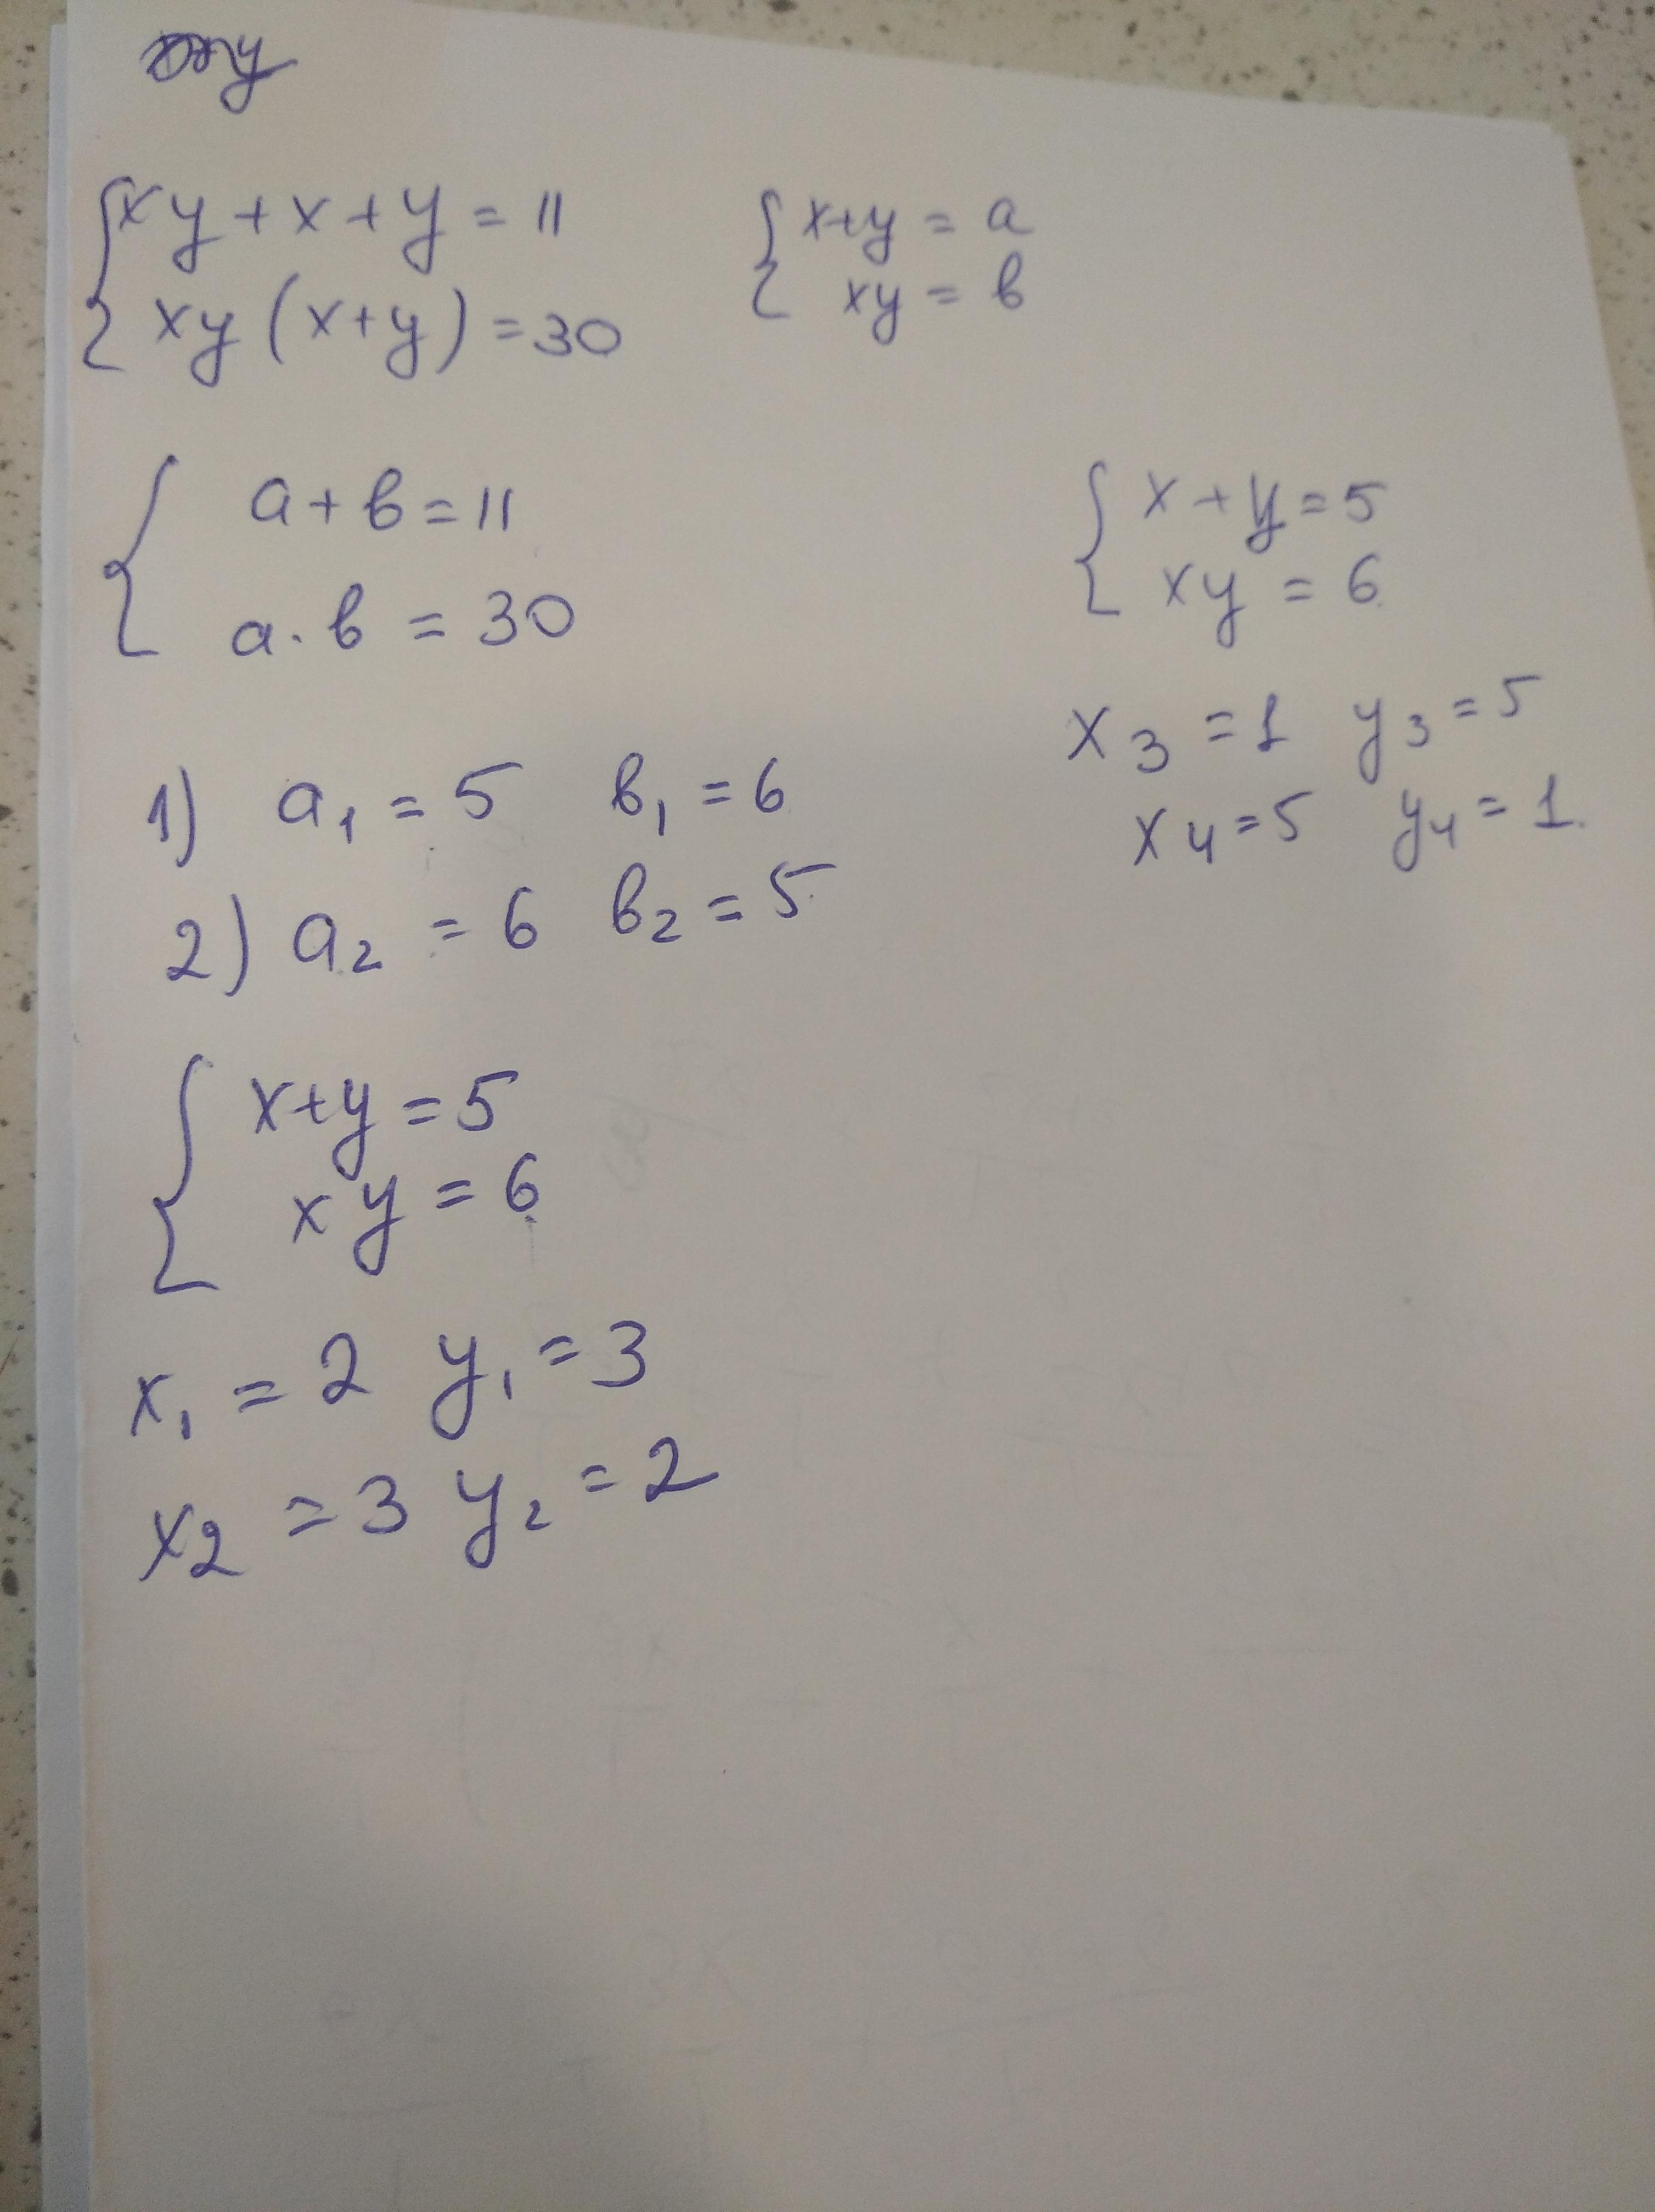 xy + x + y = 11
xy (x+y) = 30
x+y = a
xy = в
a + в = 11
a · в = 30
1) a₁ = 5 в₁ = 6
2) a₂ = 6 в₂ = 5
x+y = 5
xy = 6
x₁ = 2 y₁ = 3
x₂ = 3 y₂ = 2
x + y = 5
xy = 6
x₃ = 1 y₃ = 5
x₄ = 5 y₄ = 1